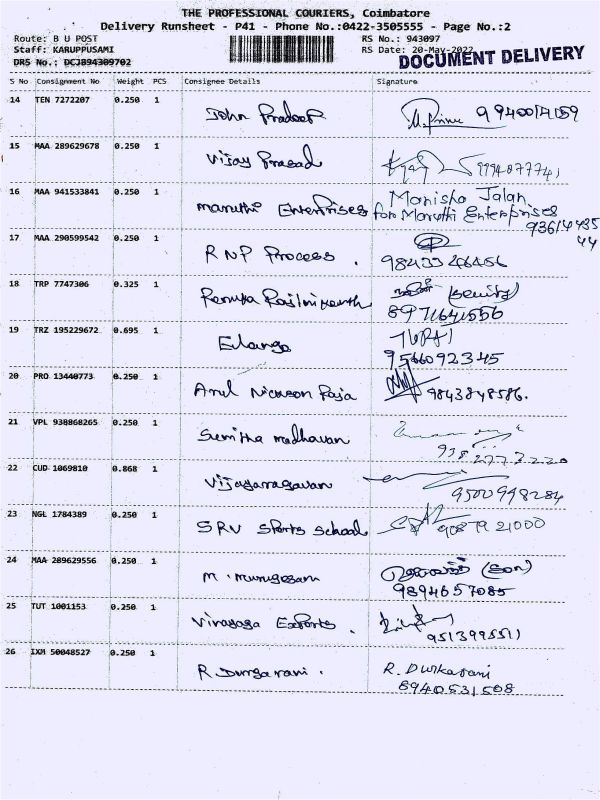 THE PROFESSIONAL COURIERS, Coimbatore
Delivery Runsheet - P41 - Phone No.:0422-3505555 - Page No.:2
Route: B U POST RS No.: 943097
Staff: KARUPPUSAMI RS Date: 20-May-2022
DOCUMENT DELIVERY
DRS No.: DCJ894309702
S No Consignment No Weight PCS Consignee Details Signature
14 TEN 7272207 0.250 1 John Pradeep
15 MAA 289629678 0.250 1 Vijay Prasad
16 MAA 941533841 0.250 1 maruthi Enterprises Manisha Jalan
for Maruthi Enterprises
93614435
44
17 MAA 290599542 0.250 1 RNP Process.
18 TRP 7747306 0.325 1
8971641556
19 TRZ 195229672 0.695 1 Elango
9566092345
20 PRO 13440773 0.250 1 Arul Nickson Raja 9843848586.
21 VPL 938868265 0.250 1 Sumitha madhavan
22 CUD 1069810 0.868 1 Vijayarragavan
9500998284
23 NGL 1784389 0.250 1 SRV Sports School 9087921000
24 MAA 289629556 0.250 1 M. Murugesan (Son)
9894657085
25 TUT 1001153 0.250 1 Vinayaga Exports.
9513995511
26 IXM 50048527 0.250 1 R. Durgarani. R. Durkarani
8940531508